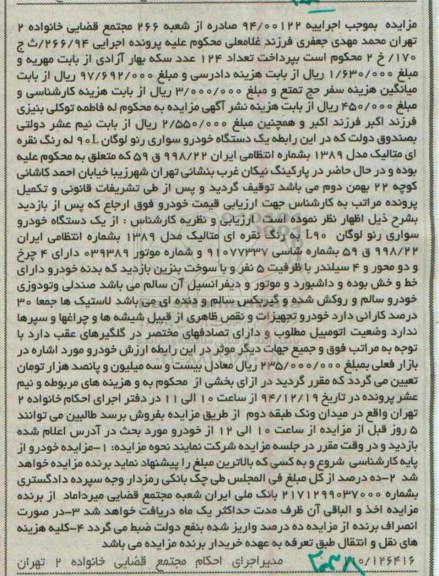 مزایده بموجب اجراییه ۹۴/۰۰۱۲۲ صادره از شعبه ۲۶۶ مجتمع قضایی خانواده ۲
تهران محمد مهدی جعفری فرزند غلامعلی محکوم علیه پرونده اجرایی ۲۶۶/۹۴/ث ج
/۱۷۰/ خ ۲ محکوم است بپرداخت تعداد ۱۲۴ عدد سکه بهار آزادی از بابت مهریه و
مبلغ ۱/۶۳۰/۰۰۰ ریال از بابت هزینه دادرسی و مبلغ ۹۷/۶۹۲/۰۰۰ ریال از بابت
میانگین هزینه سفر حج تمتع و مبلغ ۳/۰۰۰/۰۰۰ ریال از بابت هزینه کارشناسی و
مبلغ ۴۵۰/۰۰۰ ریال از بابت هزینه نشر آگهی مزایده به محکوم له فاطمه توکلی بنیزی
فرزند اکبر فرزند اکبر و همچنین مبلغ ۲/۵۵۰/۰۰۰ ریال از بابت نیم عشر دولتی
بصندوق دولت که در این رابطه یک دستگاه خودرو سواری رنو لوگان L۹۰ له رنگ نقره
ای متالیک مدل ۱۳۸۹ بشماره انتظامی ایران ۹۹۸/۲۲ ق ۵۹ که متعلق به محکوم علیه
بوده و در حال حاضر در پارکینگ نیکان غرب بنشانی تهران شهرزیبا خیابان احمد کاشانی
کوچه ۲۲ بهمن دوم می باشد توقیف گردید و پس از طی تشریفات قانونی و تکمیل
پرونده مراتب به کارشناس جهت ارزیابی قیمت خودرو فوق ارجاع که پس از بازدید
بشرح ذیل اظهار نظر نموده است ارزیابی و نظریه کارشناس : از یک دستگاه خودرو
سواری رنو لوگان L۹۰ به رنگ نقره ای متالیک مدل ۱۳۸۹ بشماره انتظامی ایران
۹۹۸/۲۲ ق ۵۹ بشماره شاسی ۹۱۰۷۷۳۳۷ و شماره موتور ۰۳۹۳۸۹ دارای ۴ چرخ
و دو محور و ۴ سیلندر با ظرفیت ۵ نفر و با سوخت بنزین بازدید که بدنه خودرو دارای
خط و خش بوده و داشبورد و موتور و دیفرانسیل آن سالم می باشد صندلی وتودوزی
خودرو سالم و روکش شده و گیربکس سالم و دنده ای می باشد لاستیک ها جمعا ۳۰
درصد کارائی دارد خودرو تجهیزات و نقص ظاهری از قبیل شیشه ها و چراغها و سپرها
ندارد وضعیت اتومبیل مطلوب و دارای تصادفهای مختصر در گلگیرهای عقب دارد با
توجه به مراتب فوق و جمیع جهات دیگر موثر در این رابطه ارزش خودرو مورد اشاره در
بازار فعلی بمبلغ ۲۳۵/۰۰۰/۰۰۰ ریال معادل بیست و سه میلیون و پانصد هزار تومان
تعیین می گردد که مقرر گردید در ازای بخشی از محکوم به و هزینه های مربوطه و نیم
عشر پرونده در تاریخ ۹۴/۱۲/۱۹ از ساعت ۱۰ الی ۱۱ در دفتر اجرای احکام خانواده ۲
تهران واقع در میدان ونک طبقه دوم از طریق مزایده بفروش برسد طالبین می توانند
۵ روز قبل از مزایده از ساعت ۱۰ الی ۱۲ از خودرو مورد بحث در آدرس اعلام شده
بازدید و در وقت مقرر در جلسه مزایده شرکت نمایند نحوه مزایده: ۱-مزایده خودرو از
پایه کارشناسی شروع و به کسی که بالاترین مبلغ را پیشنهاد نماید برنده مزایده خواهد
شد ۲-ده درصد از کل مبلغ فی المجلس طی چک بانکی رمزدار وجه سپرده دادگستری
بشماره ۲۱۷۱۲۹۹۰۳۷۰۰۰ بانک ملی ایران شعبه مجتمع قضایی میرداماد از برنده
مزایده اخذ و الباقی آن ظرف مدت حداکثر یک ماه دریافت خواهد شد ۳-در صورت
انصراف برنده از مزایده ده درصد واریز شده بنفع دولت ضبط می گردد ۴-کلیه هزینه
های نقل و انتقال طبق تعرفه به عهده خریدار برنده مزایده می باشد
۰/۱۲۶۴۱۶ مدیراجرای احکام مجتمع قضایی خانواده ۲ تهران